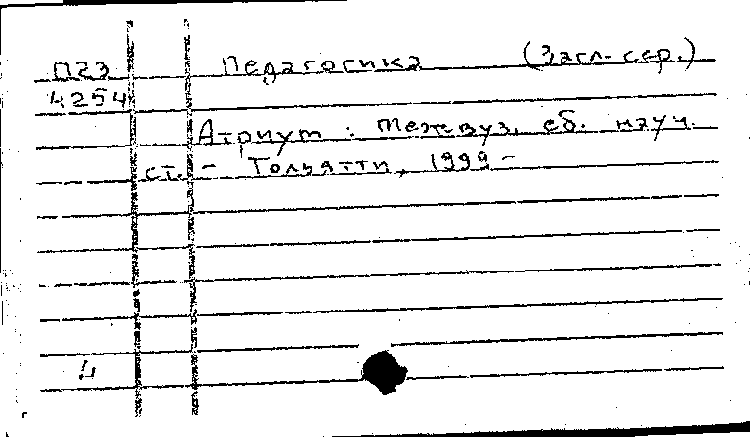 П23 Педагогика (Загл. сер.)
4254
Атриум : Межвуз. сб. науч.
ст. - Тольятти, 1999 -
4